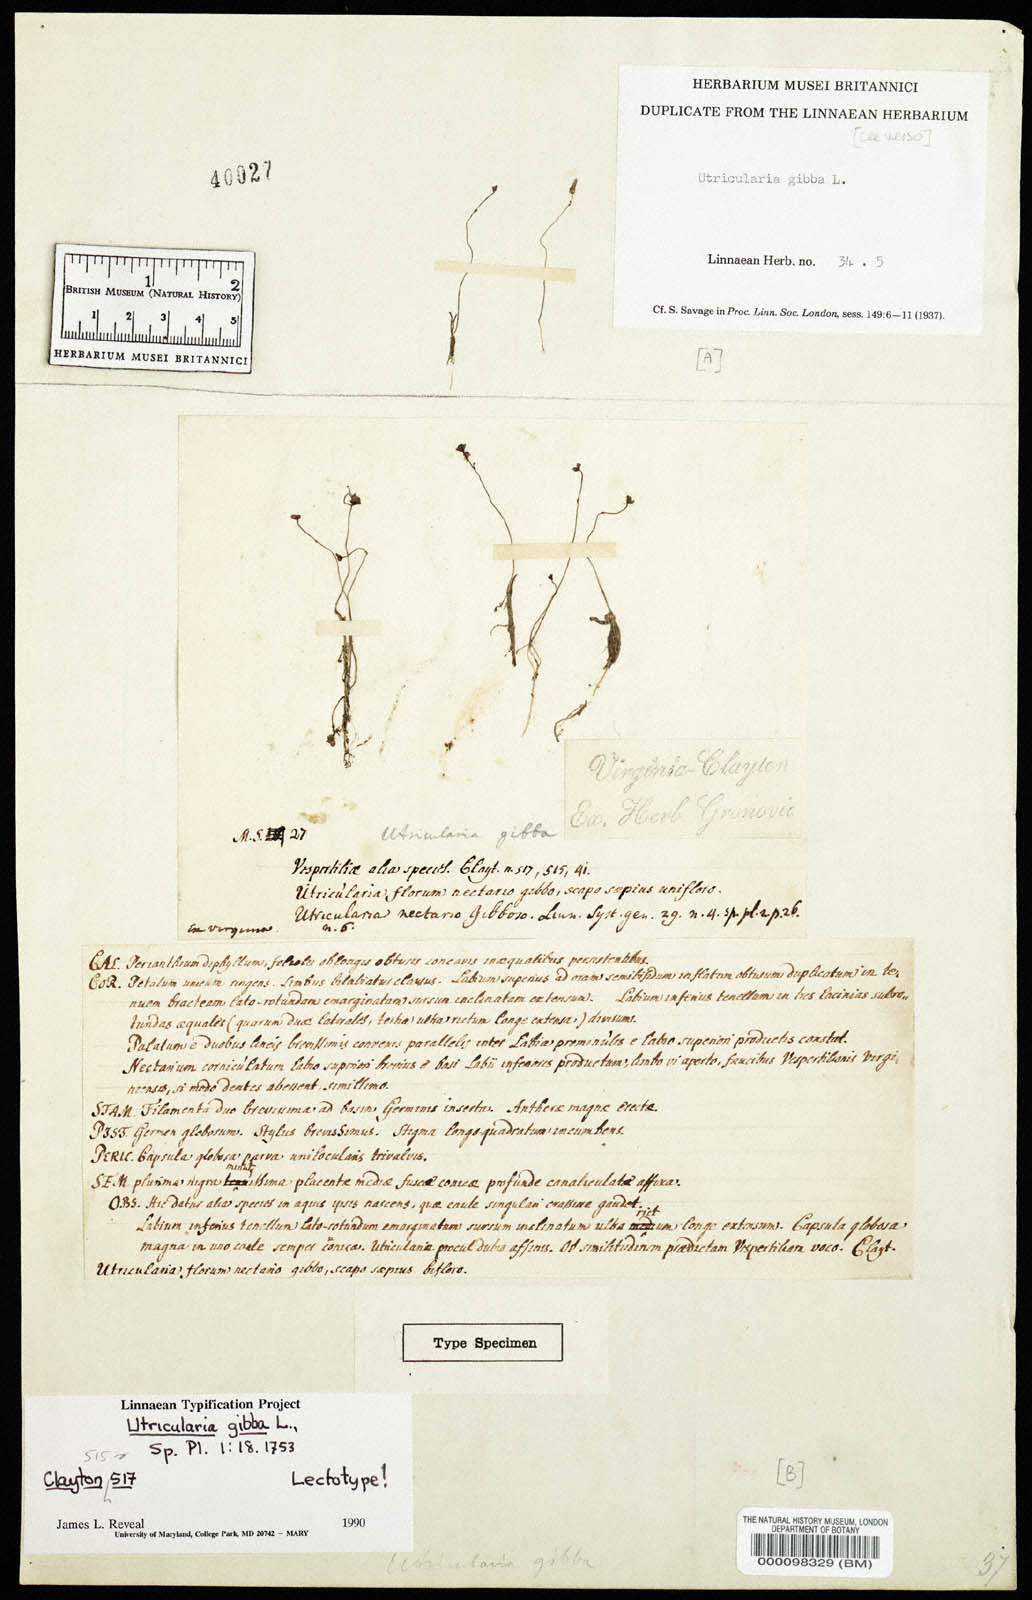 HERBARIUM MUSEI BRITANNICI
DUPLICATE FROM THE LINNAEAN HERBARIUM
[see verso]
Utricularia gibba L.
Linnaean Herb. no. 34 . 5
Cf. S. Savage in Proc. Linn. Soc. London, sess. 149:6—11 (1937).
[A]
40027
1 2
BRITISH MUSEUM (NATURAL HISTORY)
1 2 3 4 5
HERBARIUM MUSEI BRITANNICI
Virginia-Clayton
Ex. Herb. Gronovic
M.S. 27
Utricularia gibba
Vespertiliæ alia species. Clayt. n. 517, 515, 41.
Utricularia, florum nectario gibbo, scapo sæpius unifloro.
Utricularia nectario Gibboso. Linn. Syst. gen. 29. n. 4. sp. pl. 2. p. 26.
n. 6.
ex virginia
CAL. Perianthium diphyllum, foliolis oblongis obtusis concavis inæqualibus persistentibus.
COR. Petalum unicum ringens. Limbus bilabiatus clausus. Labium superius ad oram semibifidum inflatum obtusum duplicatum in te-
nuem bracteam lato-rotundam emarginatam sursum inclinatam extensum. Labium inferius tenellum in tres lacinias subro-
tundas æquales (quarum duæ laterales, tertia ultra rictum longe extensa,) divisum.
Palatum e duobus lineis brevissimis convexis parallelis inter Labia prominulis e labio superiori productis constat.
Nectarium corniculatum labio superiori brevius e basi Labii inferioris productum, limbo vi aperto, faucibus Vespertilionis Virgi-
niensis, si modo dentes abessent, simillimo.
STAM. Filamenta duo brevissima ad basin Germinis inserta. Antheræ magnæ erectæ.
PIST. Germen globosum. Stylus brevissimus. Stigma longo-quadratum incumbens.
PERIC. Capsula globosa parva unilocularis trivalvis.
SEM. plurima nigra minutissima placentæ mediæ fuscæ conicæ profunde canaliculatæ affixa.
OBS. Hic datur alia species in aquis ipsis nascens, quæ caule singulari crassiore gaudet.
Labium inferius tenellum lato-rotundum emarginatum sursum inclinatum ultra rictum longe extensum. Capsula globosa
magna in uno caule semper unica. Utricularia procul dubio affinis. Ob similitudinem prædictam Vespertilium voco. Clayt.
Utricularia, florum nectario gibbo, scapo sæpius bifloro.
Type Specimen
Linnaean Typification Project
Utricularia gibba L.,
Sp. Pl. 1:18. 1753
515
Clayton 517 Lectotype!
James L. Reveal 1990
University of Maryland, College Park, MD 20742 – MARY
[B]
THE NATURAL HISTORY MUSEUM, LONDON
DEPARTMENT OF BOTANY
000098329 (BM)
Utricularia gibba
37